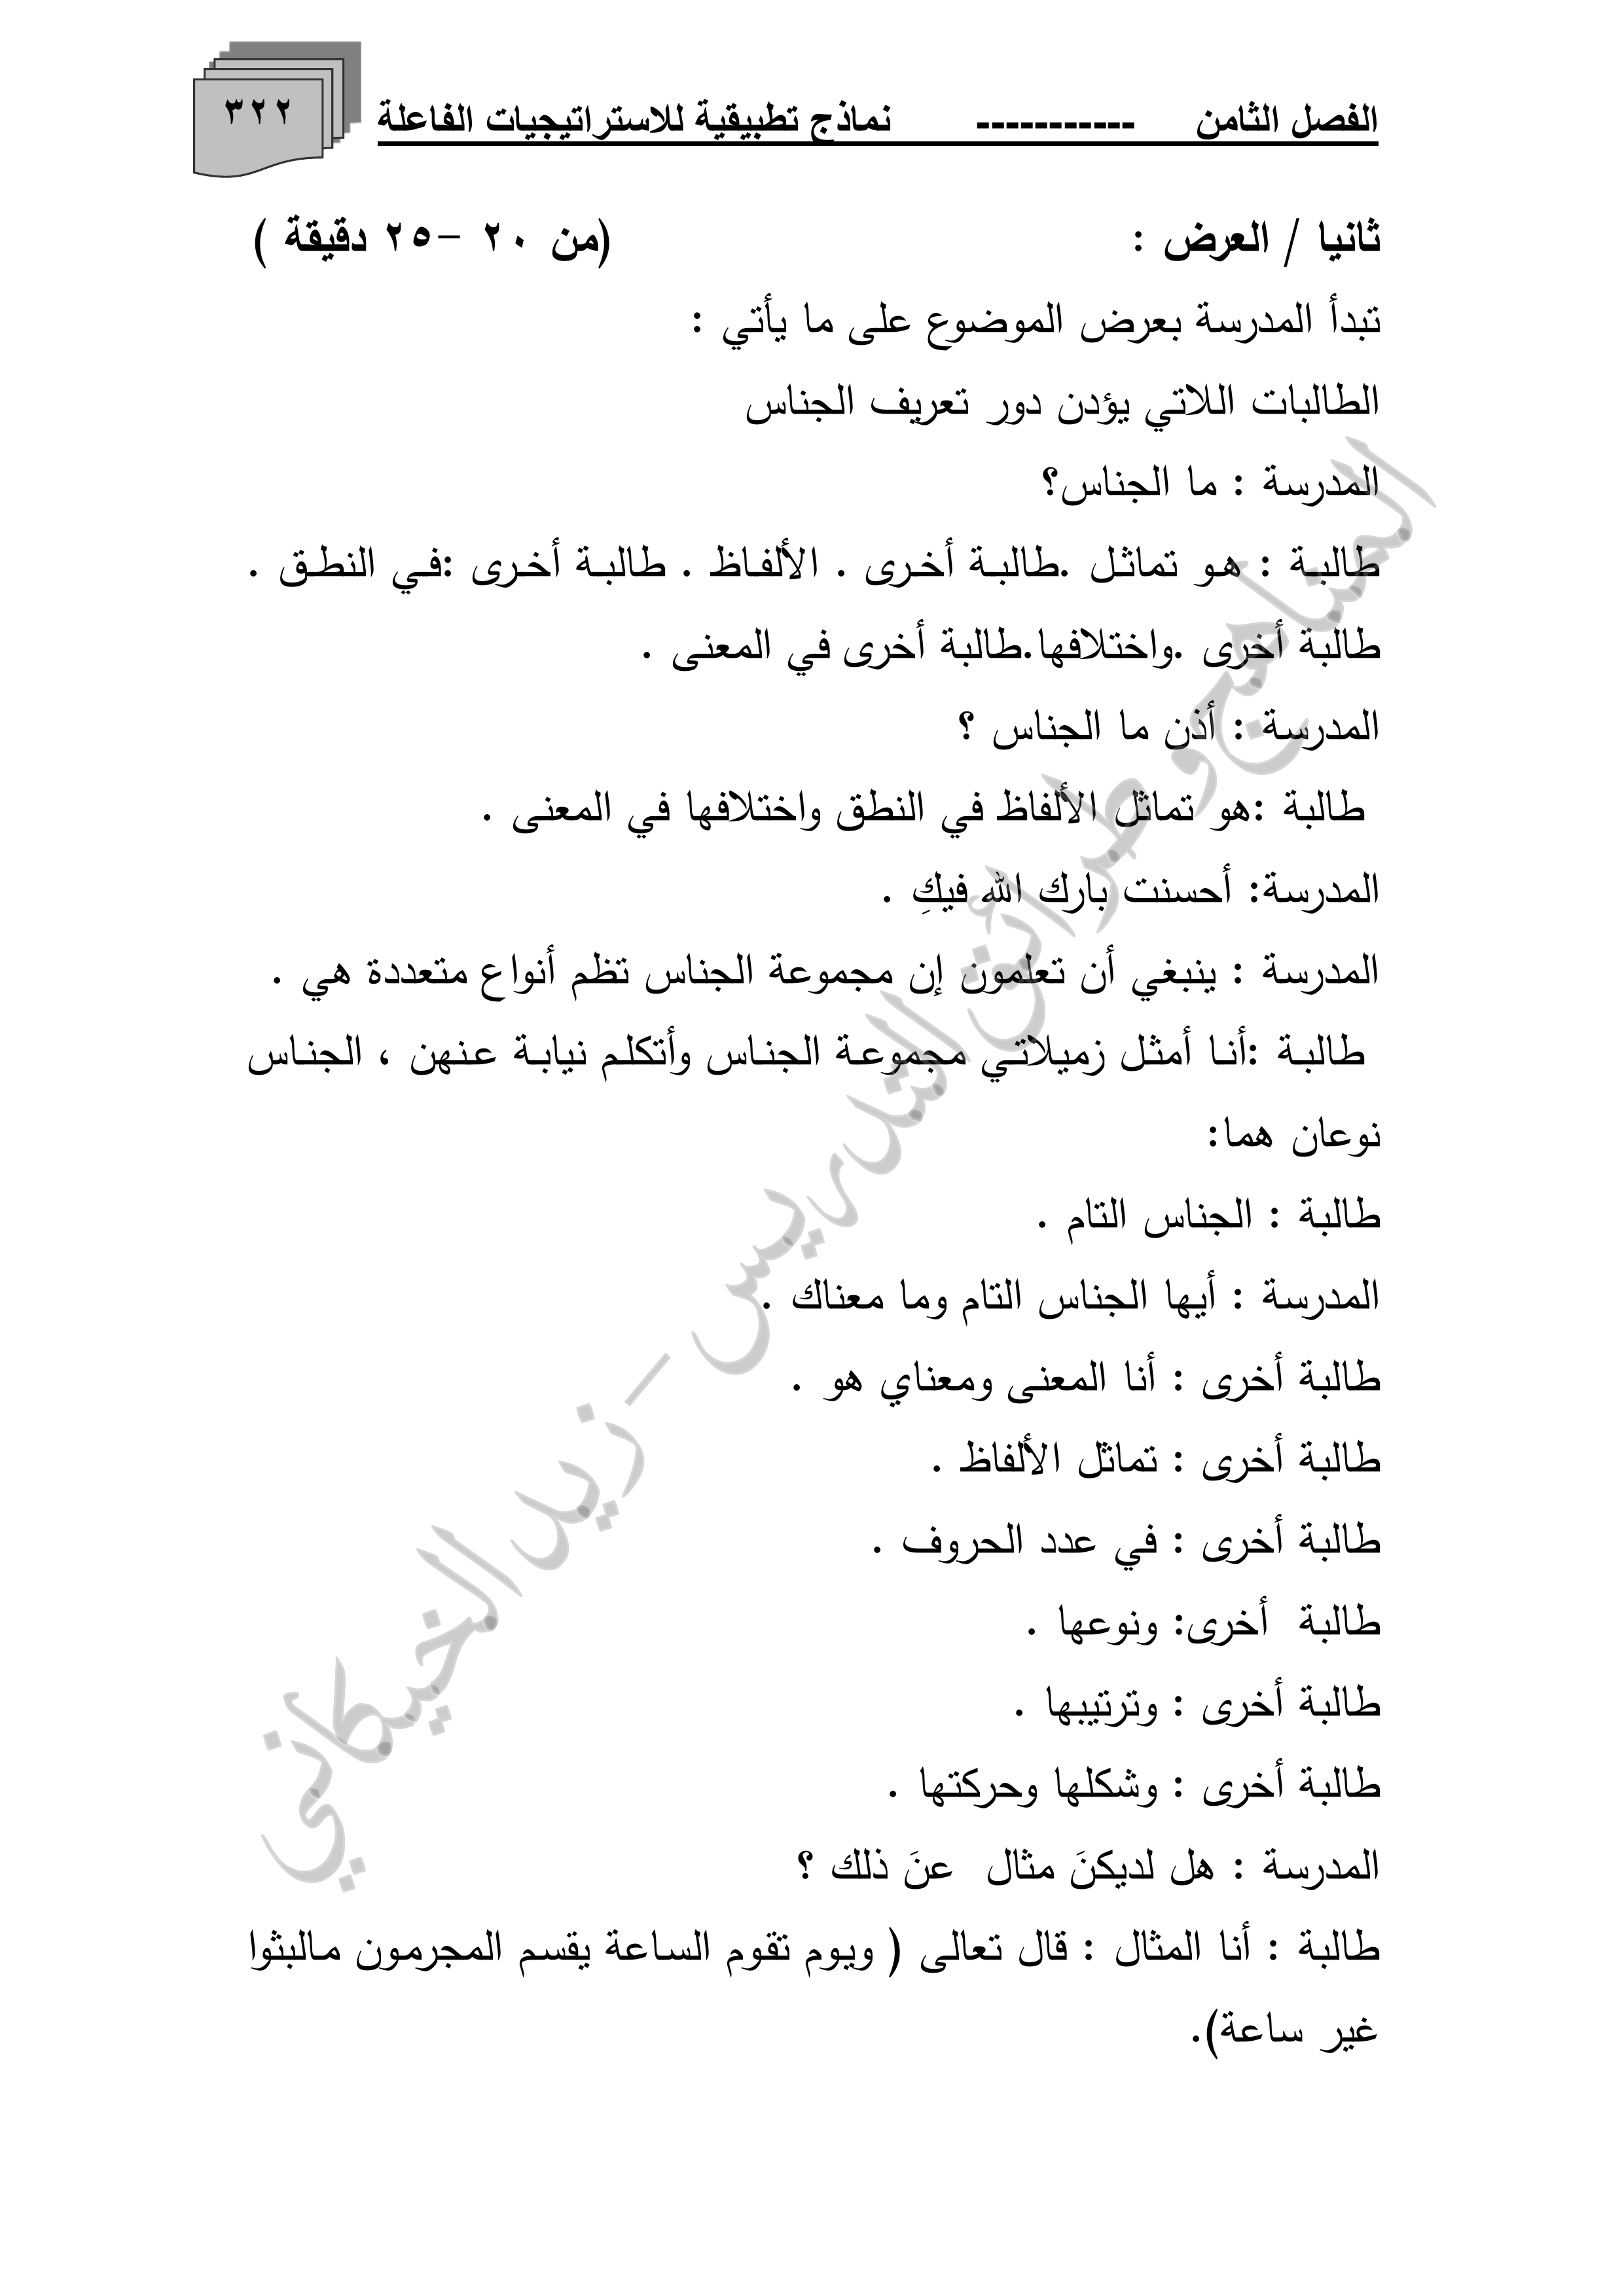 الفصل الثامن ----------- نماذج تطبيقية للاستراتيجيات الفاعلة ٣٢٢
ثانيا / العرض : (من ٢٠ -٢٥ دقيقة )
تبدأ المدرسة بعرض الموضوع على ما يأتي :
الطالبات اللاتي يؤدن دور تعريف الجناس
المدرسة : ما الجناس؟
طالبة : هو تماثل .طالبة أخرى . الألفاظ . طالبة أخرى :في النطق .
طالبة أخرى .واختلافها.طالبة أخرى في المعنى .
المدرسة : أذن ما الجناس ؟
طالبة :هو تماثل الألفاظ في النطق واختلافها في المعنى .
المدرسة: أحسنت بارك الله فيكِ .
المدرسة : ينبغي أن تعلمون إن مجموعة الجناس تظم أنواع متعددة هي .
طالبة :أنا أمثل زميلاتي مجموعة الجناس وأتكلم نيابة عنهن ، الجناس
نوعان هما:
طالبة : الجناس التام .
المدرسة : أيها الجناس التام وما معناك .
طالبة أخرى : أنا المعنى ومعناي هو .
طالبة أخرى : تماثل الألفاظ .
طالبة أخرى : في عدد الحروف .
طالبة أخرى: ونوعها .
طالبة أخرى : وترتيبها .
طالبة أخرى : وشكلها وحركتها .
المدرسة : هل لديكنَ مثال عنَ ذلك ؟
طالبة : أنا المثال : قال تعالى ( ويوم تقوم الساعة يقسم المجرمون مالبثوا
غير ساعة).
المناهج وطرائق التدريس - زيد الخيكاني